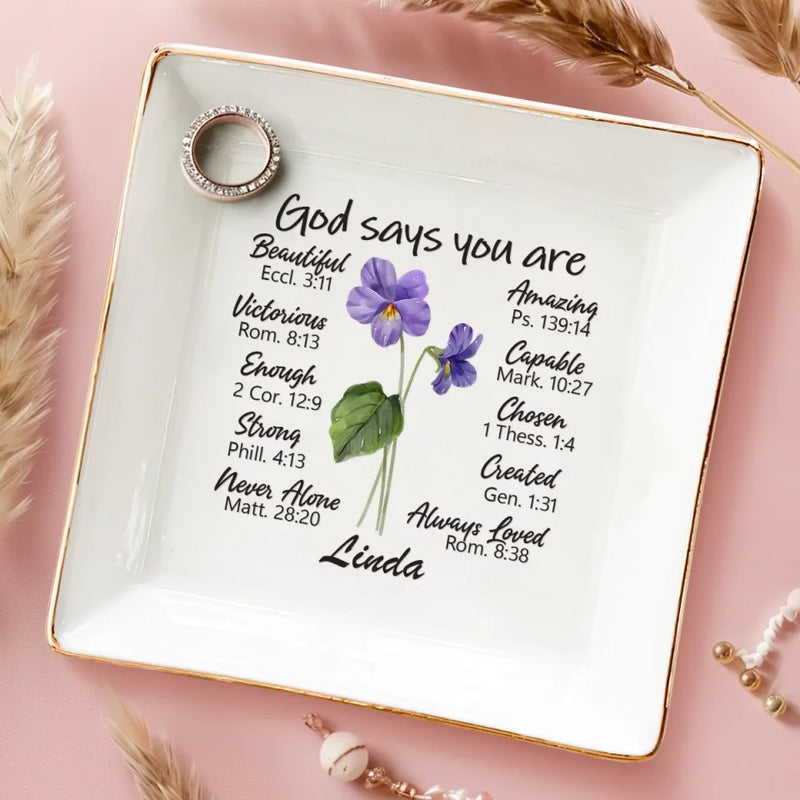 God says you are
Beautiful
Eccl. 3:11
Victorious
Rom. 8:13
Enough
2 Cor. 12:9
Strong
Phill. 4:13
Never Alone
Matt. 28:20
Amazing
Ps. 139:14
Capable
Mark. 10:27
Chosen
1 Thess. 1:4
Created
Gen. 1:31
Always Loved
Rom. 8:38
Linda